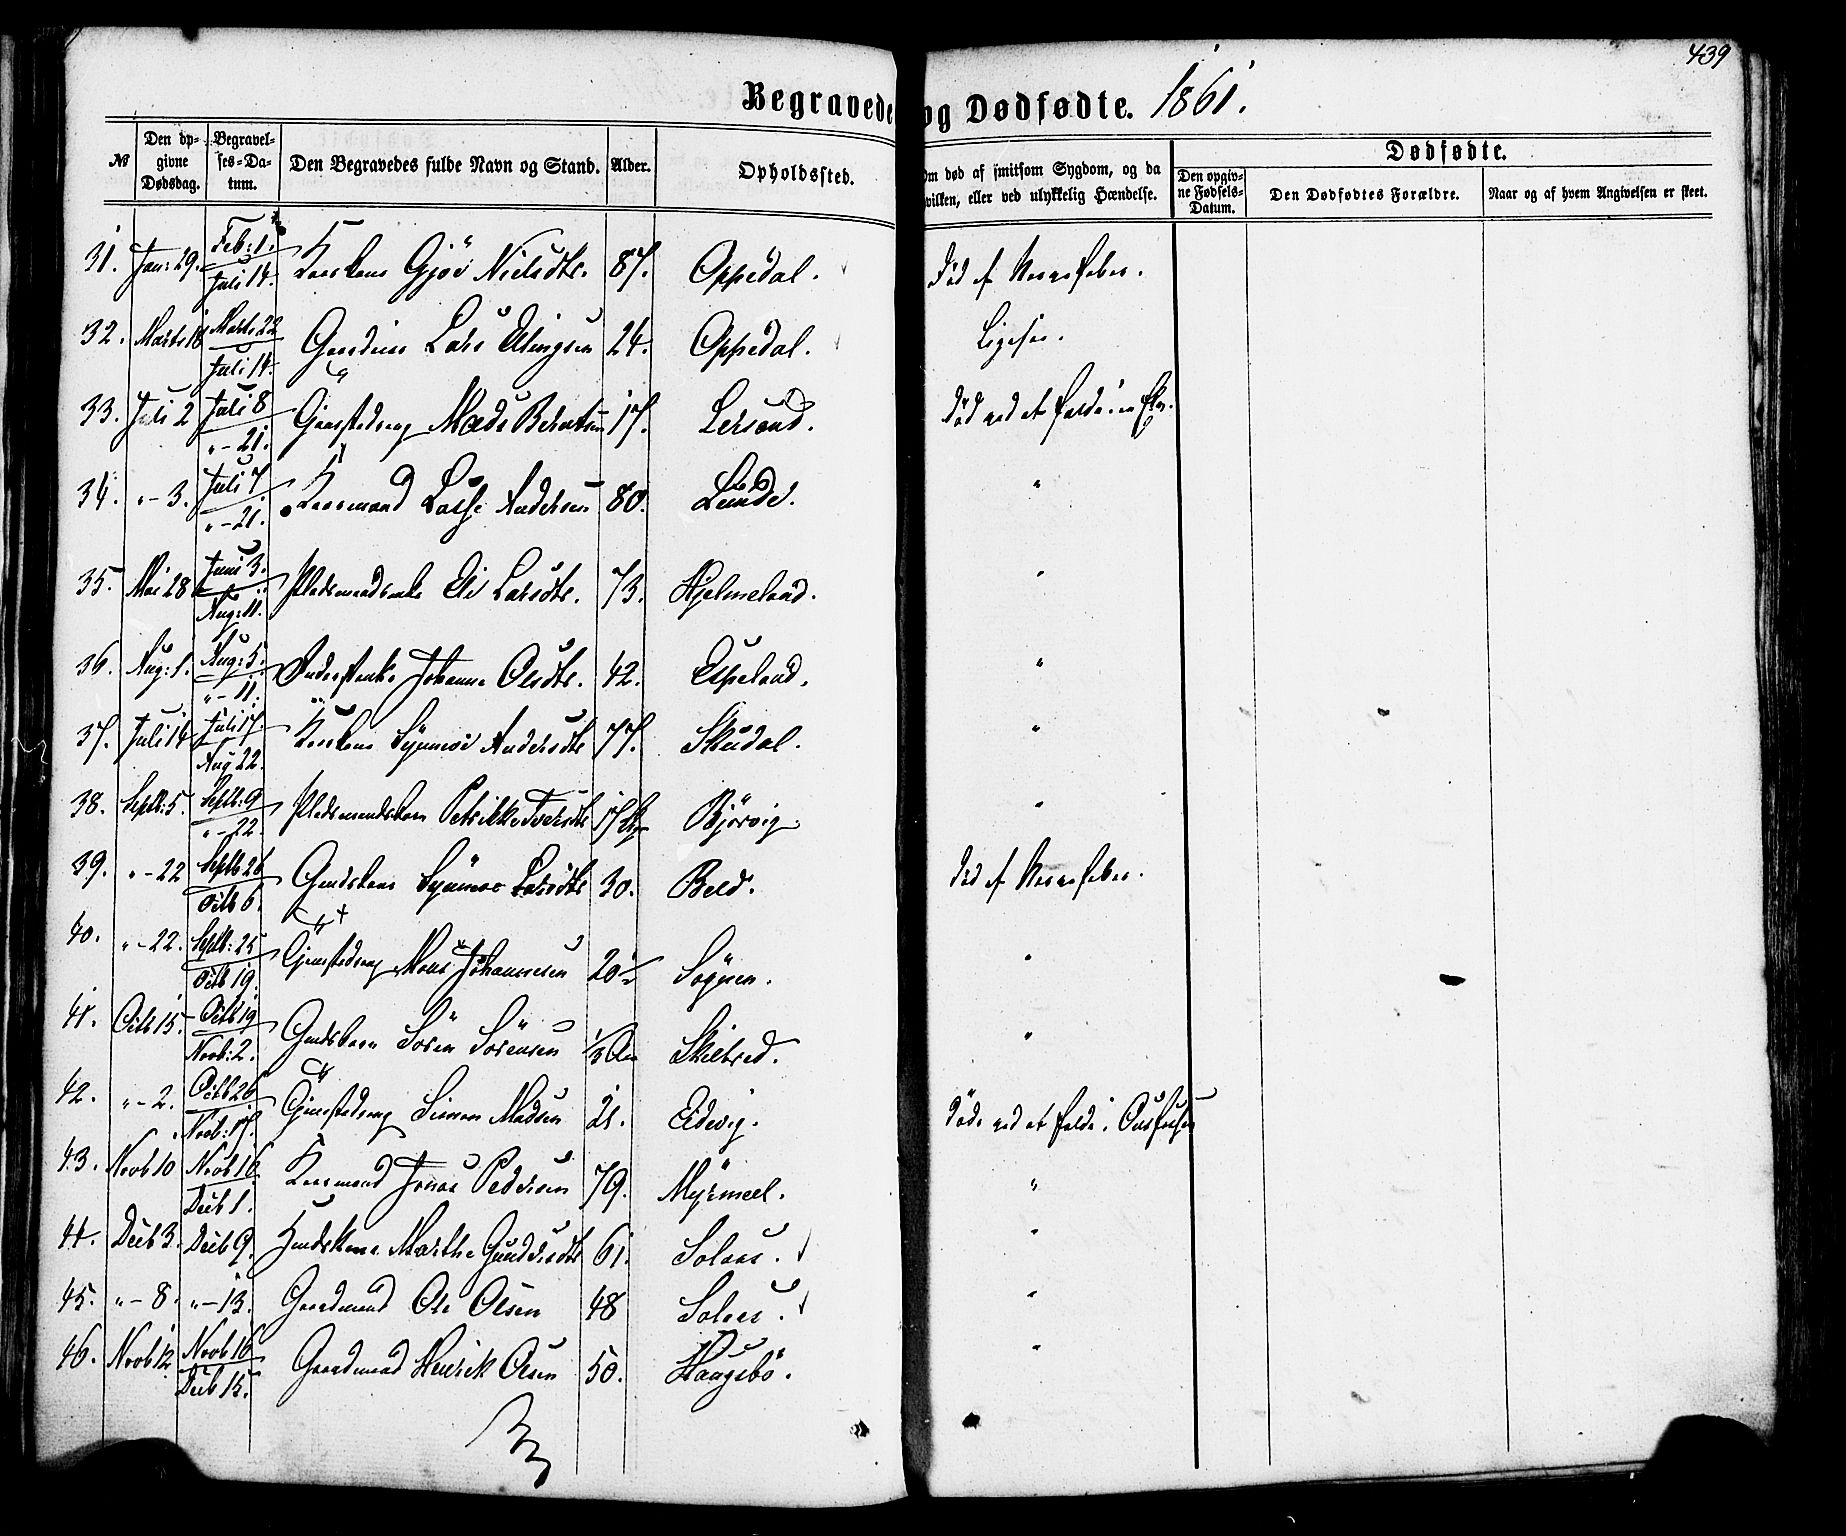 439
Begravede og Dødfødte. 1861.
№
Den op-
givne
Dødsdag.
Begravel-
ses-Da-
tum.
Den Begravedes fulde Navn og Stand.
Alder.
Opholdssted.
Om død af smitsom Sygdom, og da
hvilken, eller ved ulykkelig Hændelse.
Dødfødte.
Den opgiv-
ne Fødsels-
Datum.
Den Dødfødtes Forældre.
Naar og af hvem Angivelsen er skeet.
31. Jan: 29. Feb: 1. Juli 14. Gjøri Nielsdtr. 87. Oppedal. Død af Nervefeber.
32. Marts 16 Marts 22 Juli 14. Lars Elingsen 24. Oppedal. Ligesaa.
33. Juli 2 Juli 8 "-21. Mads Berntsen 17. Lersund. Død ved et Fald i en Elv.
34. "-3. Juli 7 "-21. Kaarmand Lasse Andersen 80. Lunde. "
35. Mai 28 Juni 3. Aug: 11. Pladsmandsenke Eli Larsdtr. 73. Hjelmeland. "
36. Aug: 1. Aug: 5. "-11. Johanne Olsdtr. 42. Espeland. "
37. Juli 14 Juli 17. Aug 22. Synnøve Andersdtr 77. Skudal. "
38. Septb: 5. Septb: 9 "-22. Pladsmandsbarn Petrikke Iversdtr 17 Bjørvig. "
39. "-22 Septb 26 Octb 6. Synnøve Larsdtr 30. Død af Nervefeber.
40. "-22. Septb: 25 Octb 19. Gjerstedreng Mons Johannesen 20 ½ Sognen. "
41. Octb 15. Octb 19 Novb: 2. Gmdsbarn Søren Sørensen Skilbred. "
42. "-2. Octb 26 Novb: 17. Gjerstedreng Simon Madsen 21. Eidevig. Døde ved et Fald i
43. Novb 10 Novb 16 Decb 1. Kaarmand Jonas Pedersen 79. Myrmeel. "
44. Decb 3. Decb 9. Marthe Gundersdtr 61. Solaas. "
45. "-8. "-13. Gaardmand Ole Olsen 48 Solaas. "
46. Novb 12. Novb 16 Decb 15. Gaardmand Henrik Olsen 50. Haugsbø. "